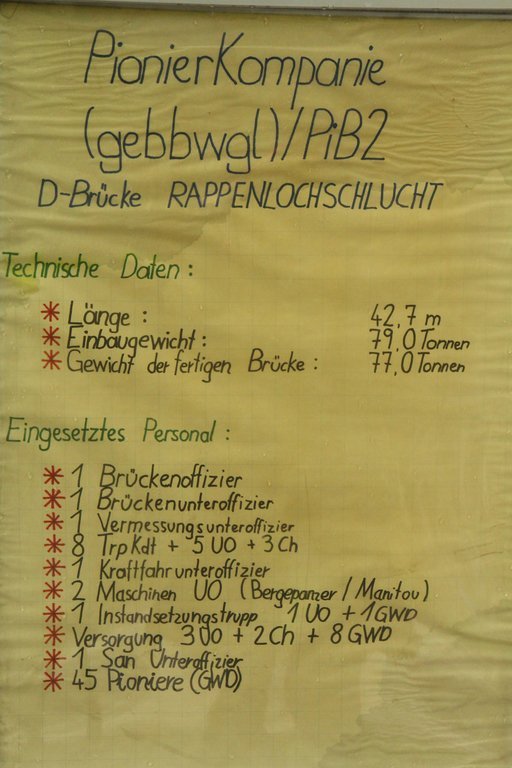 PionierKompanie
(gebbwgl)/PiB2
D-Brücke RAPPENLOCHSCHLUCHT
Technische Daten:
* Länge : 42,7 m
* Einbaugewicht: 79,0 Tonnen
* Gewicht der fertigen Brücke : 77,0 Tonnen
Eingesetztes Personal :
* 1 Brückenoffizier
* 1 Brückenunteroffizier
* 1 Vermessungsunteroffizier
* 8 TrpKdt + 5 UO + 3 Ch
* 1 Kraftfahrunteroffizier
* 2 Maschinen UO (Bergepanzer / Manitou)
* 1 Instandsetzungstrupp 1 UO + 1 GWD
* Versorgung 3 UO + 2 Ch + 8 GWD
* 1 San Unteroffizier
* 45 Pioniere (GWD)